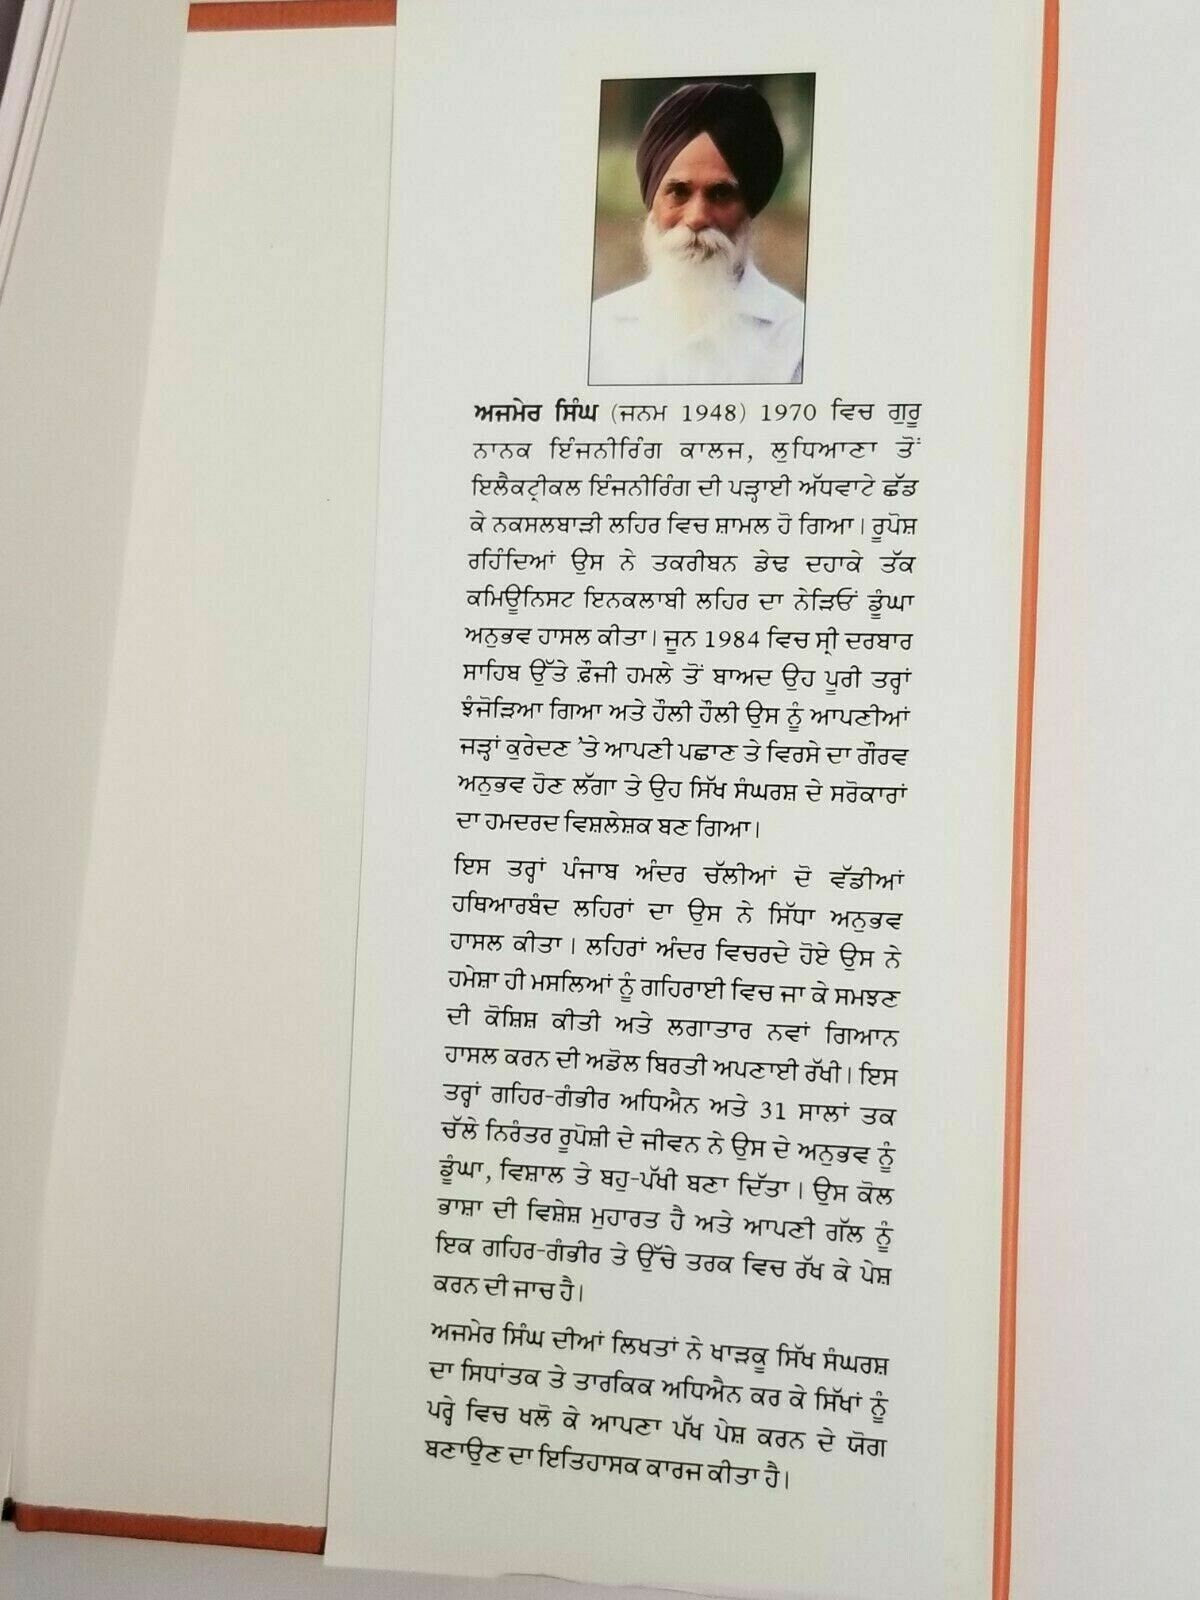 ਅਜਮੇਰ ਸਿੰਘ (ਜਨਮ 1948) 1970 ਵਿਚ ਗੁਰੂ
ਨਾਨਕ ਇੰਜਨੀਰਿੰਗ ਕਾਲਜ, ਲੁਧਿਆਣਾ ਤੋਂ
ਇਲੈਕਟ੍ਰੀਕਲ ਇੰਜਨੀਰਿੰਗ ਦੀ ਪੜ੍ਹਾਈ ਅੱਧਵਾਟੇ ਛੱਡ
ਕੇ ਨਕਸਲਬਾੜੀ ਲਹਿਰ ਵਿਚ ਸ਼ਾਮਲ ਹੋ ਗਿਆ। ਰੂਪੋਸ਼
ਰਹਿੰਦਿਆਂ ਉਸ ਨੇ ਤਕਰੀਬਨ ਡੇਢ ਦਹਾਕੇ ਤੱਕ
ਕਮਿਊਨਿਸਟ ਇਨਕਲਾਬੀ ਲਹਿਰ ਦਾ ਨੇੜਿਓਂ ਡੂੰਘਾ
ਅਨੁਭਵ ਹਾਸਲ ਕੀਤਾ। ਜੂਨ 1984 ਵਿਚ ਸ੍ਰੀ ਦਰਬਾਰ
ਸਾਹਿਬ ਉੱਤੇ ਫ਼ੌਜੀ ਹਮਲੇ ਤੋਂ ਬਾਅਦ ਉਹ ਪੂਰੀ ਤਰ੍ਹਾਂ
ਝੰਜੋੜਿਆ ਗਿਆ ਅਤੇ ਹੌਲੀ ਹੌਲੀ ਉਸ ਨੂੰ ਆਪਣੀਆਂ
ਜੜ੍ਹਾਂ ਕੁਰੇਦਣ 'ਤੇ ਆਪਣੀ ਪਛਾਣ ਤੇ ਵਿਰਸੇ ਦਾ ਗੌਰਵ
ਅਨੁਭਵ ਹੋਣ ਲੱਗਾ ਤੇ ਉਹ ਸਿੱਖ ਸੰਘਰਸ਼ ਦੇ ਸਰੋਕਾਰਾਂ
ਦਾ ਹਮਦਰਦ ਵਿਸ਼ਲੇਸ਼ਕ ਬਣ ਗਿਆ।
ਇਸ ਤਰ੍ਹਾਂ ਪੰਜਾਬ ਅੰਦਰ ਚੱਲੀਆਂ ਦੋ ਵੱਡੀਆਂ
ਹਥਿਆਰਬੰਦ ਲਹਿਰਾਂ ਦਾ ਉਸ ਨੇ ਸਿੱਧਾ ਅਨੁਭਵ
ਹਾਸਲ ਕੀਤਾ। ਲਹਿਰਾਂ ਅੰਦਰ ਵਿਚਰਦੇ ਹੋਏ ਉਸ ਨੇ
ਹਮੇਸ਼ਾ ਹੀ ਮਸਲਿਆਂ ਨੂੰ ਗਹਿਰਾਈ ਵਿਚ ਜਾ ਕੇ ਸਮਝਣ
ਦੀ ਕੋਸ਼ਿਸ਼ ਕੀਤੀ ਅਤੇ ਲਗਾਤਾਰ ਨਵਾਂ ਗਿਆਨ
ਹਾਸਲ ਕਰਨ ਦੀ ਅਡੋਲ ਬਿਰਤੀ ਅਪਣਾਈ ਰੱਖੀ। ਇਸ
ਤਰ੍ਹਾਂ ਗਹਿਰ-ਗੰਭੀਰ ਅਧਿਐਨ ਅਤੇ 31 ਸਾਲਾਂ ਤਕ
ਚੱਲੇ ਨਿਰੰਤਰ ਰੂਪੋਸ਼ੀ ਦੇ ਜੀਵਨ ਨੇ ਉਸ ਦੇ ਅਨੁਭਵ ਨੂੰ
ਡੂੰਘਾ, ਵਿਸ਼ਾਲ ਤੇ ਬਹੁ-ਪੱਖੀ ਬਣਾ ਦਿੱਤਾ। ਉਸ ਕੋਲ
ਭਾਸ਼ਾ ਦੀ ਵਿਸ਼ੇਸ਼ ਮੁਹਾਰਤ ਹੈ ਅਤੇ ਆਪਣੀ ਗੱਲ ਨੂੰ
ਇਕ ਗਹਿਰ-ਗੰਭੀਰ ਤੇ ਉੱਚੇ ਤਰਕ ਵਿਚ ਰੱਖ ਕੇ ਪੇਸ਼
ਕਰਨ ਦੀ ਜਾਚ ਹੈ।
ਅਜਮੇਰ ਸਿੰਘ ਦੀਆਂ ਲਿਖਤਾਂ ਨੇ ਖਾੜਕੂ ਸਿੱਖ ਸੰਘਰਸ਼
ਦਾ ਸਿਧਾਂਤਕ ਤੇ ਤਾਰਕਿਕ ਅਧਿਐਨ ਕਰ ਕੇ ਸਿੱਖਾਂ ਨੂੰ
ਪਰ੍ਹੇ ਵਿਚ ਖਲੋ ਕੇ ਆਪਣਾ ਪੱਖ ਪੇਸ਼ ਕਰਨ ਦੇ ਯੋਗ
ਬਣਾਉਣ ਦਾ ਇਤਿਹਾਸਕ ਕਾਰਜ ਕੀਤਾ ਹੈ।